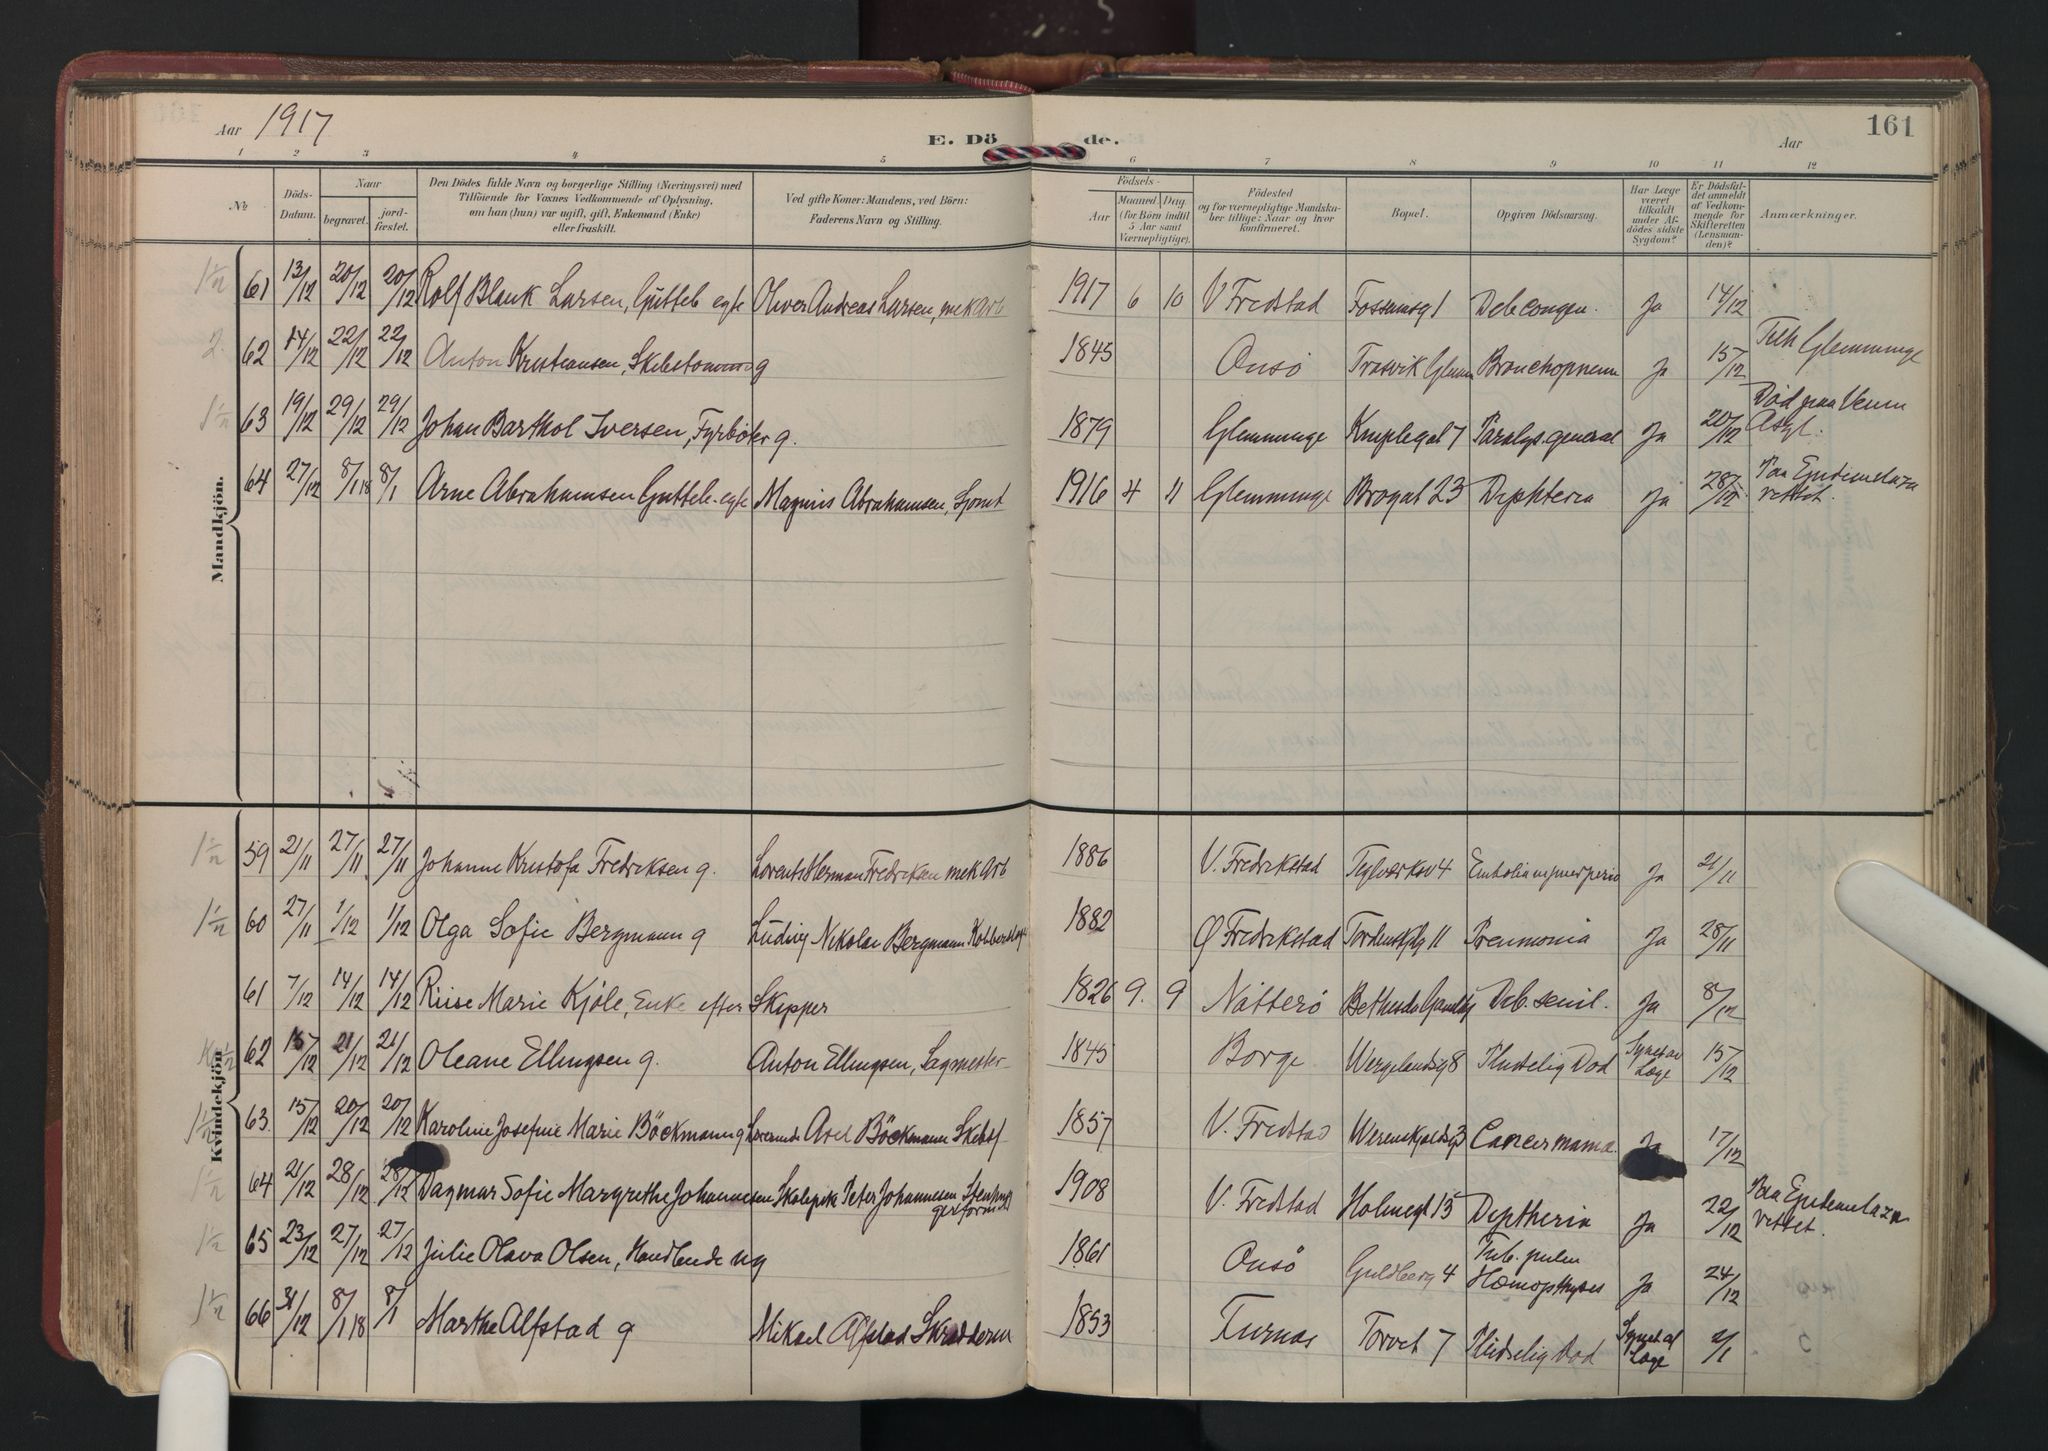 Aar 1917
E. Dö de.
161
Aar
1 2 3 4 5 6 7 8 9 10 11 12
No
Döds-Datum.
Naar
begravet.
jord-fæstet.
Den Dödes fulde Navn og borgerlige Stilling (Næringsvei) med
Tilföiende for Voxnes Vedkommende af Oplysning,
om han (hun) var ugift, gift, Enkemand (Enke)
eller fraskilt.
Ved gifte Koner: Mandens, ved Börn:
Faderens Navn og Stilling.
Födsels-
Aar
Maaned Dag
(for Börn indtil
5 Aar samt
Værnepligtige).
Födested
og for værnepligtige Mandska-
ber tillige: Naar og hvor
konfirmeret.
Bopæl.
Opgiven Dödsaarsag.
Har Læge
været
tilkaldt
under Af-
dödes sidste
Sygdom?
Er Dödsfal-
det anmeldt
af Vedkom-
mende for
Skifteretten
(Lensman-
den)?
Anmærkninger.
Mandkjön.
61 13/12 20/12 20/12 Rolf Blank Larsen, Gutteb egte Oliver Andreas Larsen, mek Arb 1917 6 10 V Fredstad Fossumsg 1 Deb congen. Ja 14/12
62 14/12 22/12 22/12 Anton Kristiansen, Skibstømm g 1845 Onsö Trosvik Glem Bronchopneum Ja 15/12 Tilh Glemminge
63 19/12 29/12 29/12 Johan Barthol Iversen, Fyrböter g. 1879 Glemminge 7 Paralys. general Ja 20/12 Död paa Veum Asyl.
64 27/12 8/1 18 8/1 Arne Abrahamsen Gutteb. egte Magnus Abrahamsen, Sjömt 1916 4 11 Glemminge Brogat 23 Diphteria Ja 28/12 Paa Epidemilaza rettet.
Kvindekjön
59 21/11 27/11 27/11 Johanne Kristofa Fredriksen g. Lorents Herman Fredriksen mek Arb 1886 V. Fredrikstad Teglverksv 4 Embolia Ja 21/11
60 27/11 1/12 1/12 Olga Sofie Bergmann g Ludvig Nikolai Bergmann 1882 Ø Fredrikstad Tordenskjg 11 Pneumonia Ja 28/11
61 7/12 14/12 14/12 Riise Marie Kjöle, Enke efter Skipper 1826 9. 9 Nötterö Bethesda Gamlhj Deb. senil. Ja 8/12
62 15/12 21/12 21/12 Oleane Ellingsen g. Anton Ellingsen, Sagmester 1845 Borge Wergelandsg 8 Pludselig Död Synet av Læge 15/12
63. 15/12 20/12 20/12 Karoline Josefine Marie Böckmann g Axel Böckmann Skibsf 1857 V. Fredstad Werenskjoldsg 3 Cancer mama. Ja 17/12
64 21/12 28/12 28/12 Dagmar Sofie Margrethe Johannesen Skolepike Peter Johannesen Stenhug gerformand 1908 V. Fredstad Holmegt 15 Diptheria Ja 22/12 Paa Epidemilaza rettet.
65 23/12 27/12 27/12 Julie Olava Olsen, Handlende ug 1861 Onsö Guldberg 4 Tub. pulm Hæmopthyses Ja 24/12
66 31/12 8/1 18 8/1 Marthe Alfstad g Mikael Alfstad Skrædderm 1853 Furnæs Torvet 7 Pludselig Död Synet af Læge 2/1